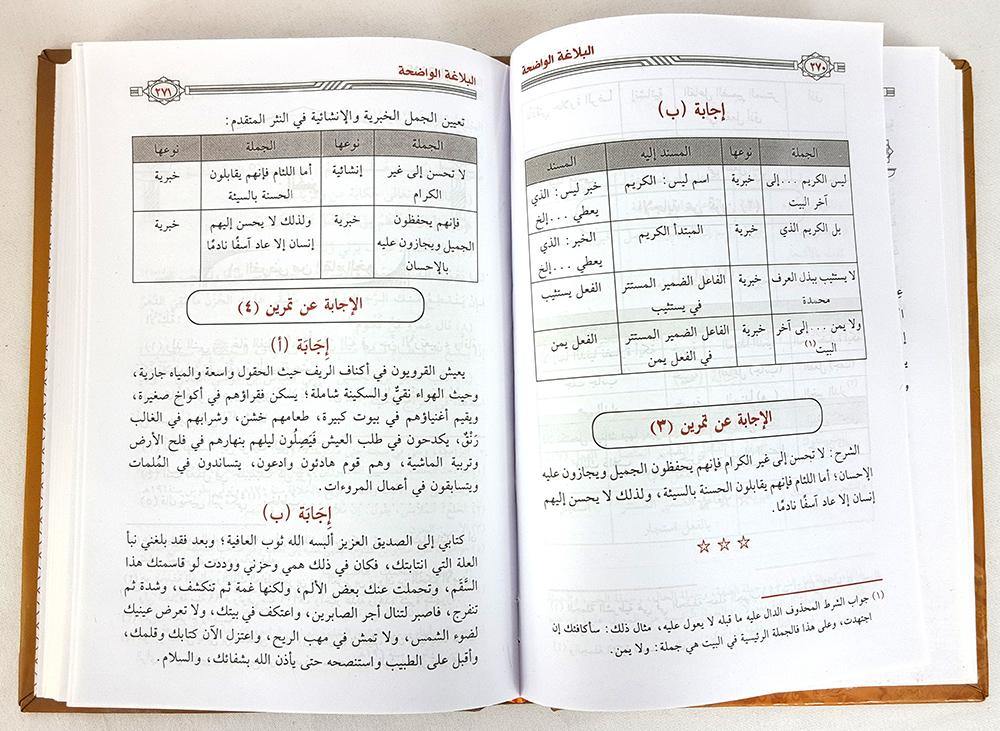 البلاغة الواضحة
٢٧٠
إجابة (ب)
الجملة نوعها المسند إليه المسند
ليس الكريم ...إلى آخر البيت خبرية اسم ليس: الكريم خبر ليس: الذي يعطي ...إلخ
بل الكريم الذي خبرية المبتدأ الكريم الخبر: الذي يعطي ...إلخ
لا يستثيب ببذل العرف محمدة خبرية الفاعل الضمير المستتر في يستثيب الفعل يستثيب
ولا يمن ...إلى آخر البيت(١) خبرية الفاعل الضمير المستتر في الفعل يمن الفعل يمن
الإجابة عن تمرين (٣)
الشرح: لا تحسن إلى غير الكرام فإنهم يحفظون الجميل ويجازون عليه
الإحسان؛ أما اللئام فإنهم يقابلون الحسنة بالسيئة، ولذلك لا يحسن إليهم
إنسان إلا عاد آسفًا نادمًا.
(١) جواب الشرط المحذوف الدال عليه ما قبله لا يعول عليه، مثال ذلك: سأكافئك إن
اجتهدت، وعلى هذا فالجملة الرئيسية في البيت هي جملة: ولا يمن.
البلاغة الواضحة
٢٧١
تعيين الجمل الخبرية والإنشائية في النثر المتقدم:
الجملة نوعها الجملة نوعها
لا تحسن إلى غير الكرام إنشائية أما اللئام فإنهم يقابلون الحسنة بالسيئة خبرية
فإنهم يحفظون الجميل ويجازون عليه بالإحسان خبرية ولذلك لا يحسن إليهم إنسان إلا عاد آسفًا نادمًا خبرية
الإجابة عن تمرين (٤)
إِجَابَة (أ)
يعيش القرويون في أكناف الريف حيث الحقول واسعة والمياه جارية،
وحيث الهواء نقيٌّ والسكينة شاملة؛ يسكن فقراؤهم في أكواخ صغيرة،
ويقيم أغنياؤهم في بيوت كبيرة، طعامهم خشن، وشرابهم في الغالب
رَنْقٌ، يكدحون في طلب العيش فَيَصِلُون ليلهم بنهارهم في فلح الأرض
وتربية الماشية، وهم قوم هادئون وادعون، يتساندون في المُلمات
ويتسابقون في أعمال المروءات.
إِجَابَة (ب)
كتابي إلى الصديق العزيز ألبسه الله ثوب العافية؛ وبعد فقد بلغني نبأ
العلة التي انتابتك، فكان في ذلك همي وحزني ووددت لو قاسمتك هذا
السَّقَم، وتحملت عنك بعض الألم، ولكنها غمة ثم تنكشف، وشدة ثم
تنفرج، فاصبر لتنال أجر الصابرين، واعتكف في بيتك، ولا تعرض عينيك
لضوء الشمس، ولا تمش في مهب الريح، واعتزل الآن كتابك وقلمك،
وأقبل على الطبيب واستنصحه حتى يأذن الله بشفائك، والسلام.